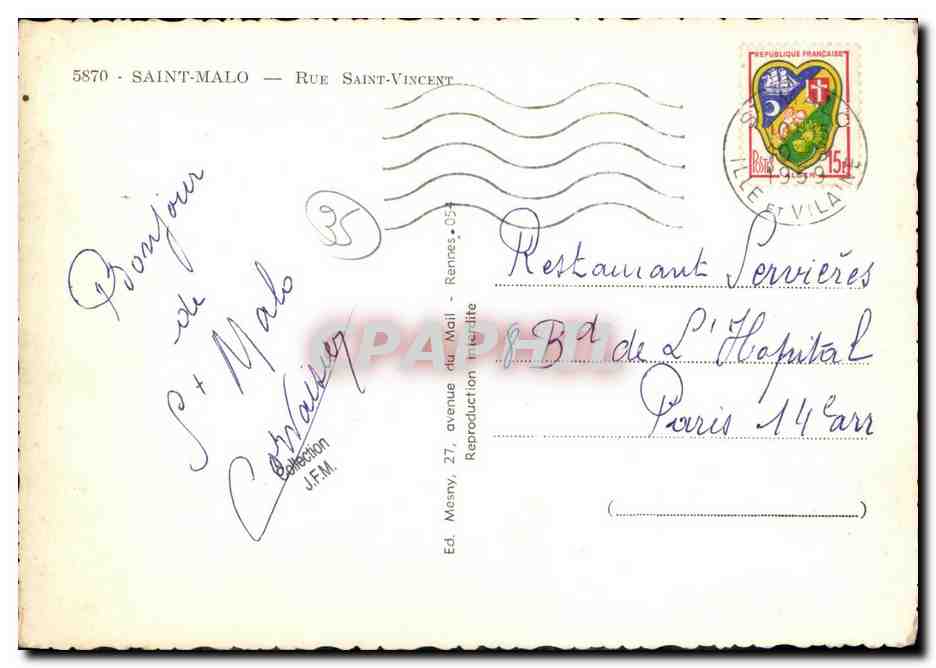 5870 - SAINT-MALO — RUE SAINT-VINCENT
REPUBLIQUE FRANÇAISE
POSTES 15F
1959
ILLE ET VILAINE
35
Bonjour
de
St Malo
Collection
J.F.M.
CPAPHIL
Ed. Mesny, 27, avenue du Mail - Rennes. 054
Reproduction Interdite
Restaurant Servières
8 Bd de L'Hopital
Paris 14e arr